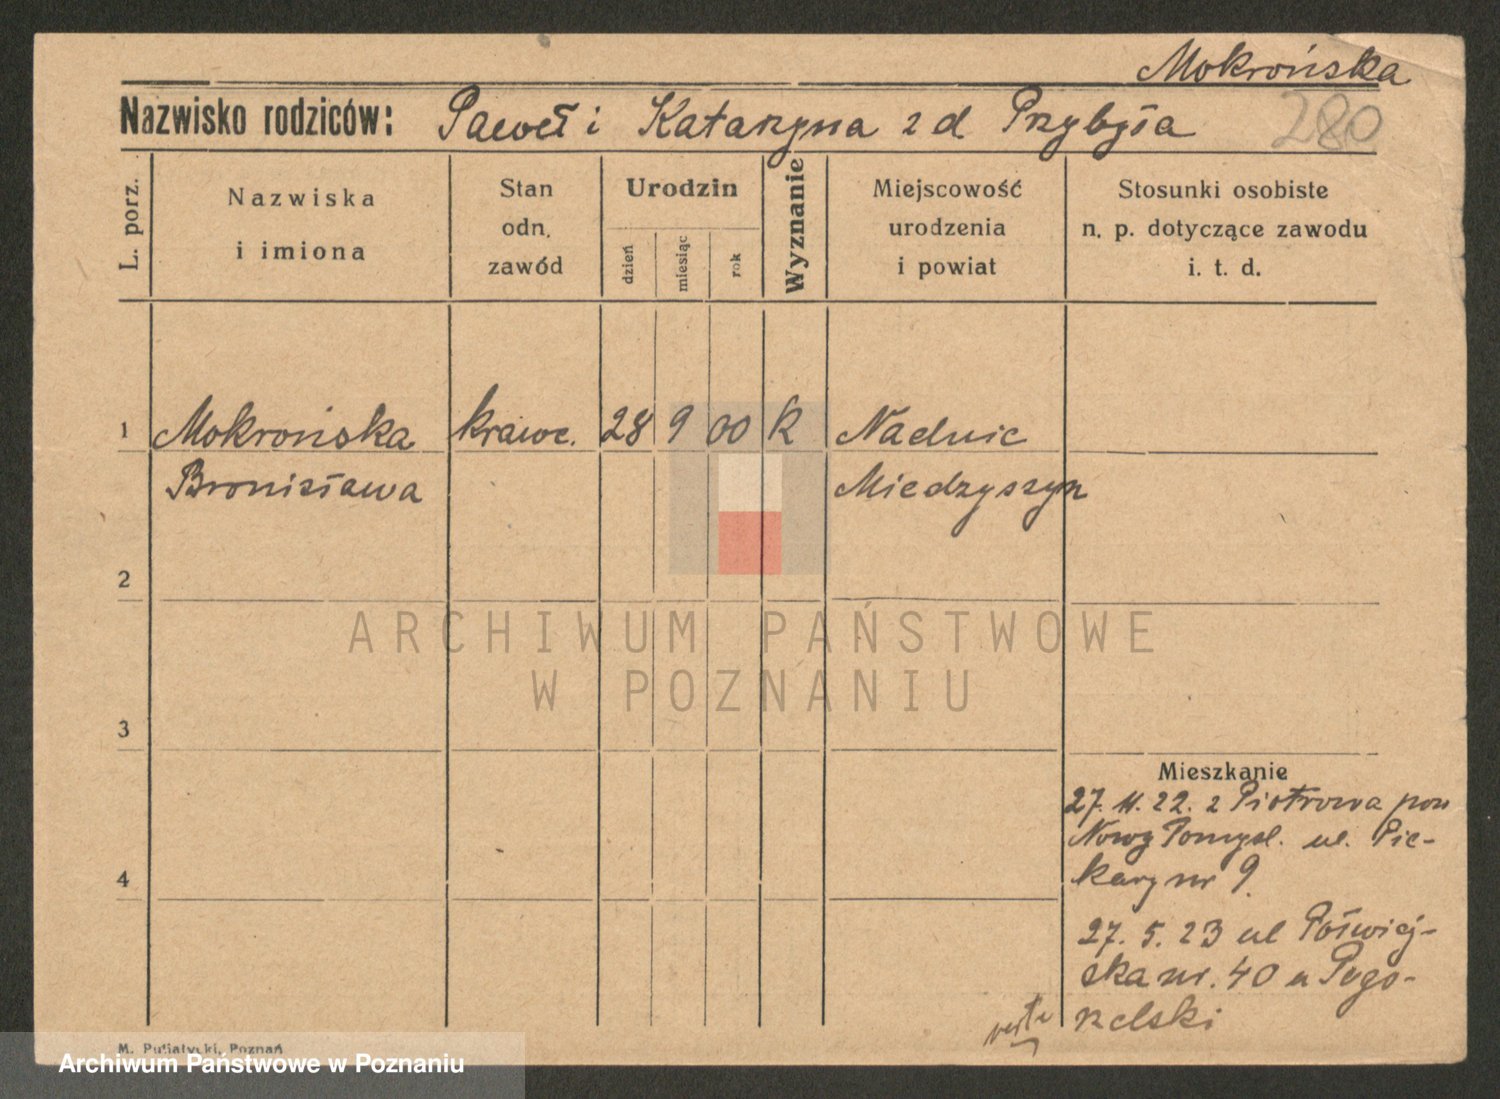 Mokrońska
Nazwisko rodziców: Paweł i Katarzyna z d Przybyła
280
L. porz.
Nazwiska
i imiona
Stan
odn.
zawód
Urodzin
dzień
miesiąc
rok
Wyznanie
Miejscowość
urodzenia
i powiat
Stosunki osobiste
n. p. dotyczące zawodu
i. t. d.
1 Mokrońska krawc. 28 9 00 K Nadnie
Bronisława Miedzyszyn
2
ARCHIWUM PAŃSTWOWE
W POZNANIU
3
Mieszkanie
27. 11. 22. z Piotrowa pow
Nowy Tomysl. ul. Pie-
kary nr 9.
4
27. 5. 23 ul
ska nr. 40 u Pogo-
rzelski
verte
M. Putiatycki, Poznań
Archiwum Państwowe w Poznaniu